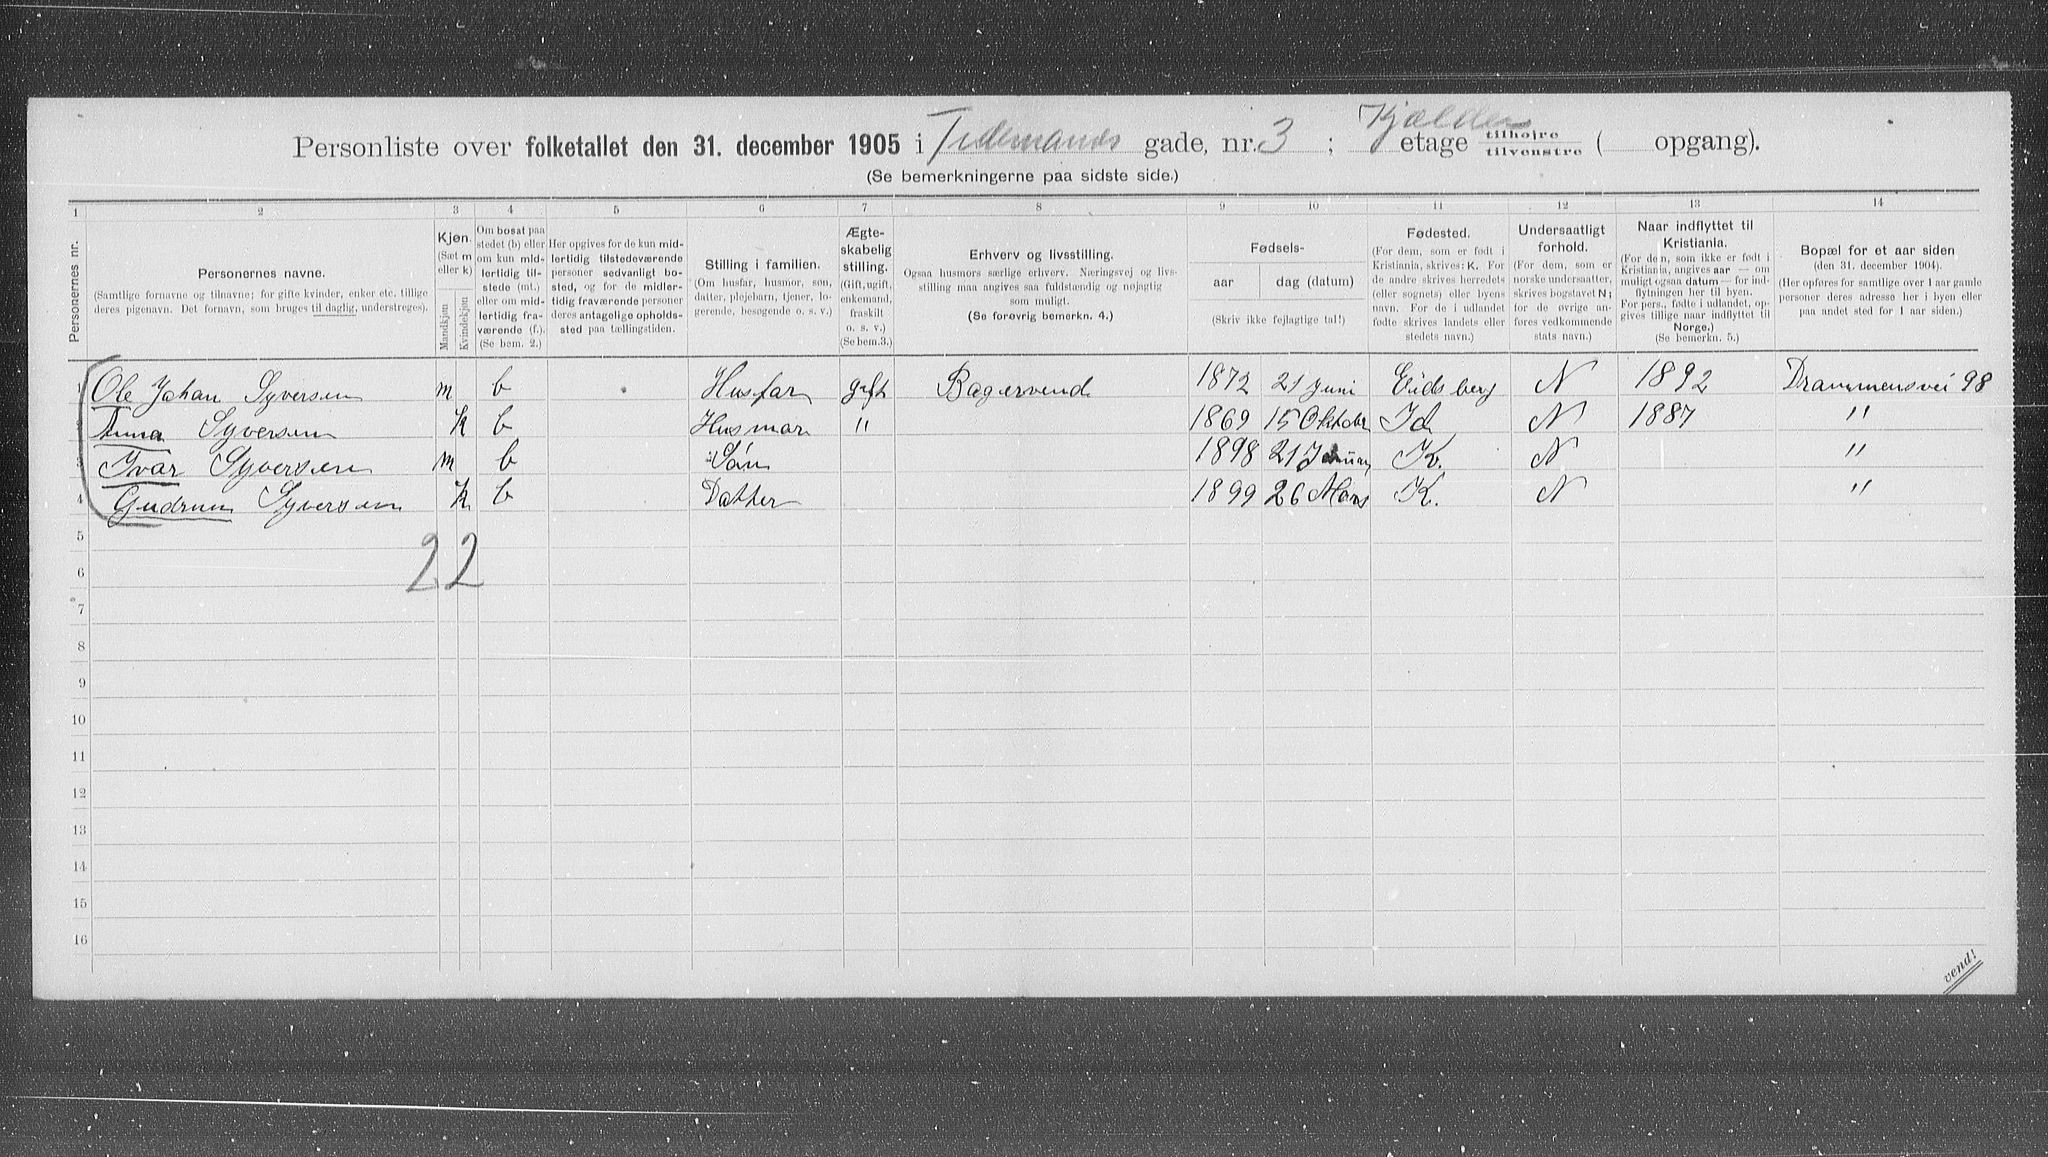 Personliste over folketallet den 31. december 1905 i Tidemands gade, nr. 3 ; Kjælder etage tilhøire tilvenstre ( opgang).
(Se bemerkningerne paa sidste side.)
1 2 3 4 5 6 7 8 9 10 11 12 13 14
Personernes nr.
Personernes navne.
(Samtlige fornavne og tilnavne; for gifte kvinder, enker etc. tillige
deres pigenavn. Det fornavn, som bruges til daglig, understreges).
Kjøn.
(Sæt m
eller k)
Mandkjøn
Kvindekjøn
Om bosat paa
stedet (b) eller
om kun mid-
lertidig til-
stede (mt.)
eller om mid-
lertidig fra-
værende (f.).
(Se bem. 2.)
Her opgives for de kun mid-
lertidig tilstedeværende
personer sedvanligt bo-
sted, og for de midler-
tidig fraværende personer
deres antagelige opholds-
sted paa tællingstiden.
Stilling i familien.
(Om husfar, husmor, søn,
datter, plejebarn, tjener, lo-
gerende, besøgende o. s. v.)
Ægte-
skabelig
stilling.
(Gift, ugift,
enkemand,
fraskilt
o. s. v.)
(Se bem. 3.)
Erhverv og livsstilling.
Ogsaa husmors særlige erhverv. Næringsvej og livs-
stilling maa angives saa fuldstændig og nøjagtig
som muligt.
(Se forøvrig bemerkn. 4.)
Fødsels-
aar dag (datum)
(Skriv ikke fejlagtige tal!)
Fødested.
(For dem, som er født i
Kristiania, skrives: K. For
de andre skrives herredets
(eller sognets) eller byens
navn. For de i udlandet
fødte skrives landets eller
stedets navn.)
Undersaatligt
forhold.
(For dem, som er
norske undersaatter,
skrives bogstavet N;
for de øvrige an-
føres vedkommende
stats navn.)
Naar indflyttet til
Kristiania.
(For dem, som ikke er født i
Kristiania, angives aar — om
muligt ogsaa datum — for ind-
flytningen her til byen.
For pers., fødte i udlandet, op-
gives tillige naar indflyttet til
Norge.)
(Se bemerkn. 5.)
Bopæl for et aar siden
(den 31. december 1904).
(Her opføres for samtlige over 1 aar gamle
personer deres adresse her i byen eller
paa andet sted for 1 aar siden.)
1 Ole Johan Syversen m b Husfar gift Bagersvend 1872 21 Juni Eidsberg N 1892 Drammensvei 98
2 Anna Syversen k b Husmor " 1869 15 Oktober Id N 1887 "
3 Ivar Syversen m b Søn 1898 21 Januar K. N "
4 Gudrun Syversen k b Datter 1899 26 Mars K. N "
5
2 2
6
7
8
9
10
11
12
13
14
15
16
vend!